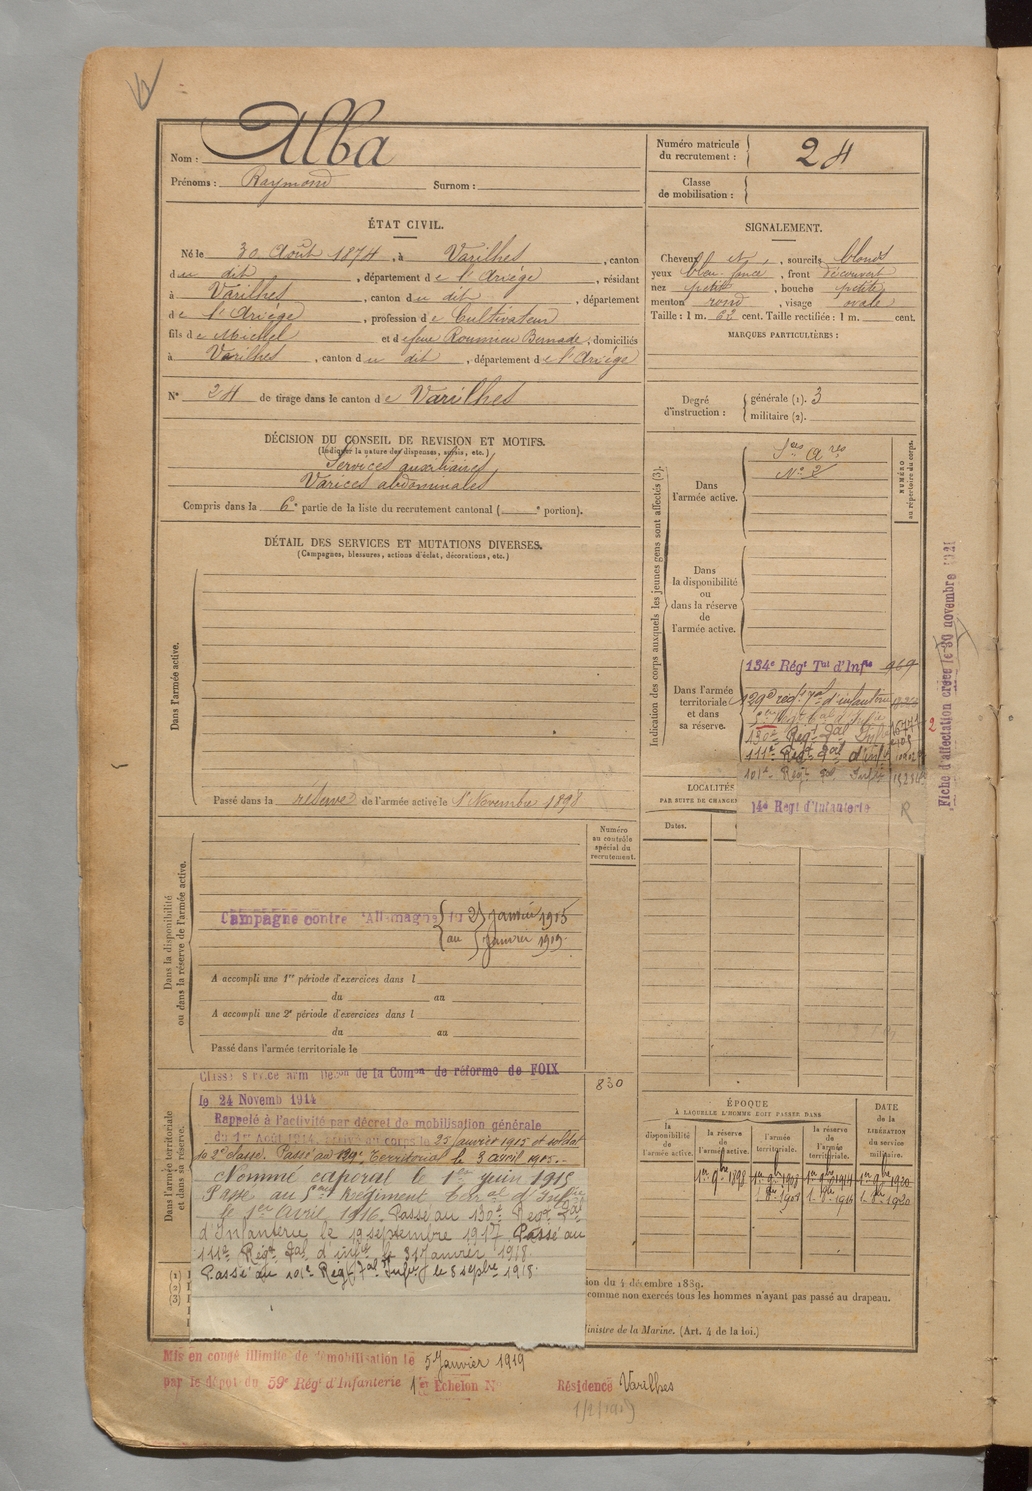 Nom : Alba
Prénoms : Raymond Surnom :
Numéro matricule du recrutement : 24
Classe de mobilisation :
ÉTAT CIVIL.
Né le 30 Août 1874, à Varilhes, canton
du dit, département de l'Ariége, résidant
à Varilhes, canton du dit, département
de l'Ariége, profession de Cultivateur
fils de Michel et de feue Roumieu Bernade, domiciliés
à Varilhes, canton du dit, département de l'Ariége
N° 24 de tirage dans le canton de Varilhes
SIGNALEMENT.
Cheveux et, sourcils blonds
yeux bleu foncé, front découvert
nez petit, bouche petite
menton rond, visage ovale
Taille : 1 m. 62 cent. Taille rectifiée : 1 m. cent.
MARQUES PARTICULIÈRES :
Degré d'instruction : générale (1). 3
militaire (2).
DÉCISION DU CONSEIL DE REVISION ET MOTIFS.
(Indiquer la nature des dispenses, sursis, etc.)
Services auxiliaires
Varices abdominales
Compris dans la 6e partie de la liste du recrutement cantonal (e portion).
DÉTAIL DES SERVICES ET MUTATIONS DIVERSES.
(Campagnes, blessures, actions d'éclat, décorations, etc.)
Dans l'armée active.
Passé dans la réserve de l'armée active le 1er Novembre 1898
Indication des corps auxquels les jeunes gens sont affectés (3).
NUMÉRO au répertoire du corps.
Dans l'armée active.
Sces Ares
N° 2
Dans la disponibilité ou dans la réserve de l'armée active.
Dans l'armée territoriale et dans sa réserve.
134e Régt Tal d'Infie 969
129e régt Tal d'infanterie
130e Regt Tal Infie
111e Regt Tal d'infie
101e Regt Tal Infie
14e Régt d'Infanterie R
2
Fiche d'affectation créée le 30 novembre 1921
LOCALITÉS
PAR SUITE DE CHANGE
Dates.
Numéro au contrôle spécial du recrutement.
830
Dans la disponibilité ou dans la réserve de l'armée active.
Campagne contre l'Allemagne du 25 janvier 1915
au 5 Janvier 1919.
A accompli une 1re période d'exercices dans l
du au
A accompli une 2e période d'exercices dans l
du au
Passé dans l'armée territoriale le
Dans l'armée territoriale et dans sa réserve.
Classé service armé Déson de la Comon de réforme de FOIX
le 24 Novemb 1914
Rappelé à l'activité par décret de mobilisation générale
du 1er Août 1914. Arrivé au corps le 25 Janvier 1915 et soldat
de 2e classe. Passé au 129e Territorial le 3 avril 1915.
Nommé caporal le 1er juin 1915
Passé au 5eme Régiment Teral d'Infie
le 1er Avril 1916. Passé au 130e Regt Tal
d'Infanterie le 19 septembre 1917. Passé au
111e Regt Tal d'infie le 31 Janvier 1918
Passé au 101e Regt Tal Infie le 8 sepbre 1918.
ÉPOQUE
À LAQUELLE L'HOMME DOIT PASSER DANS
la disponibilité de l'armée active.
la réserve de l'armée active.
l'armée territoriale.
la réserve de l'armée territoriale.
DATE de la LIBÉRATION du service militaire.
1er 9bre 1898 1er 9bre 1908 1er 9bre 1914 1er 9bre 1920
1. 8bre 1908 1. 8bre 1914 1. 8bre 1920
(1)
(2)
(3)
ion du 4 décembre 1889.
comme non exercés tous les hommes n'ayant pas passé au drapeau.
Ministre de la Marine. (Art. 4 de la loi.)
Mis en congé illimité de démobilisation le 5 Janvier 1919
par le dépôt du 59e Régt d'Infanterie 1er Echelon N° Résidence Varilhes